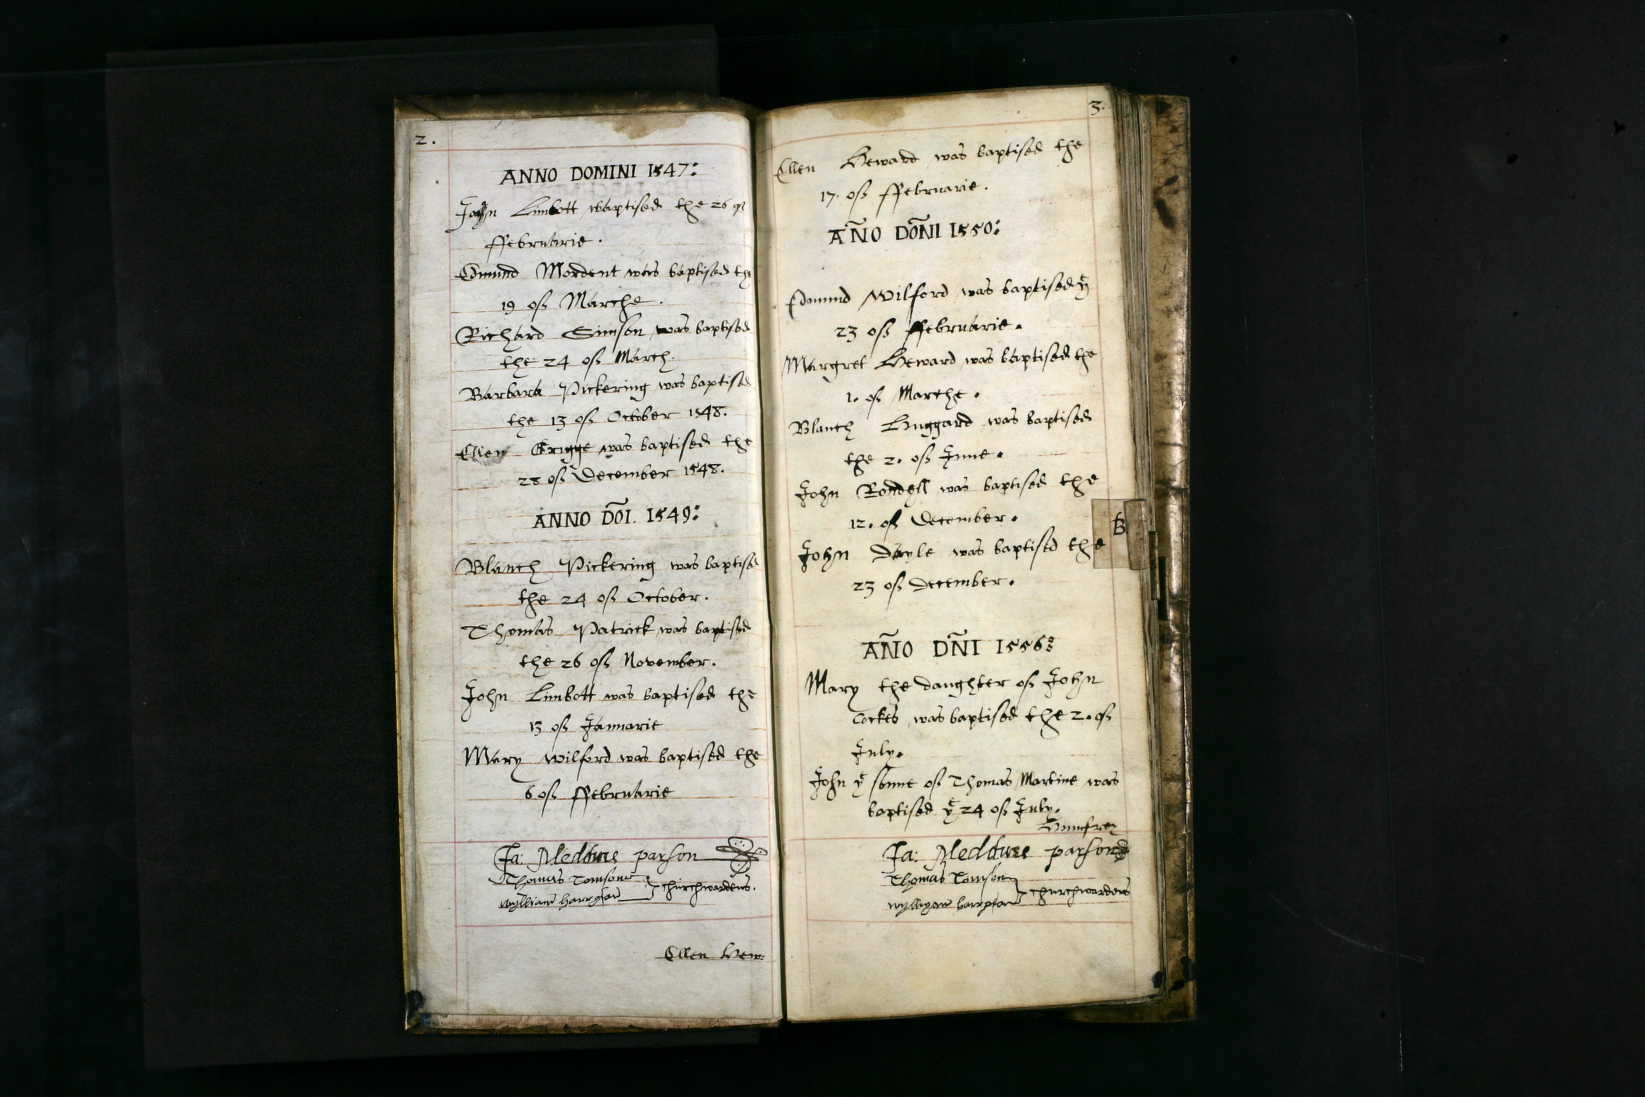 2.
ANNO DOMINI 1547:
John Limbott baptised the 26 of
ffebruarie.
Edmund Mordent was baptised the
19 off Marche.
Richard Simson was baptised
the 24 off March.
Barbara Pickering was baptised
the 13 off October 1548.
Ellen Grigge was baptised the
28 off December 1548.
ANNO DÕI. 1549:
Blanch Pickering was baptised
the 24 off October.
Thomas Patrick was baptised
the 26 off November.
John Limbott was baptised the
13 off Januarie
Mary wilford was baptised the
6 off ffebruarie
Ja: Meddus parson
Thomas Tomsone
wylliam
churchwardens.
Ellen Hew:
3.
Ellen Heward was baptised the
17. off ffebruarie.
AÑO DÕNI 1550:
Edmund Wilford was baptised yͤ
23 off ffebruarie.
Margret Heward was baptised the
1. off Marche.
Blanch Huggard was baptised
the 2. off June.
John Rondell was baptised the
12. off December.
John Dayle was baptised the
23 off December.
B
AÑO DÑI 1556:
Mary the daughter off John
Cockes was baptised the 2. off
July.
John yͤ sonne off Thomas Martine was
baptised yͤ 24 off July.
Humfrey
Ja: Meddus parson
Thomas Tomson
churchwardens